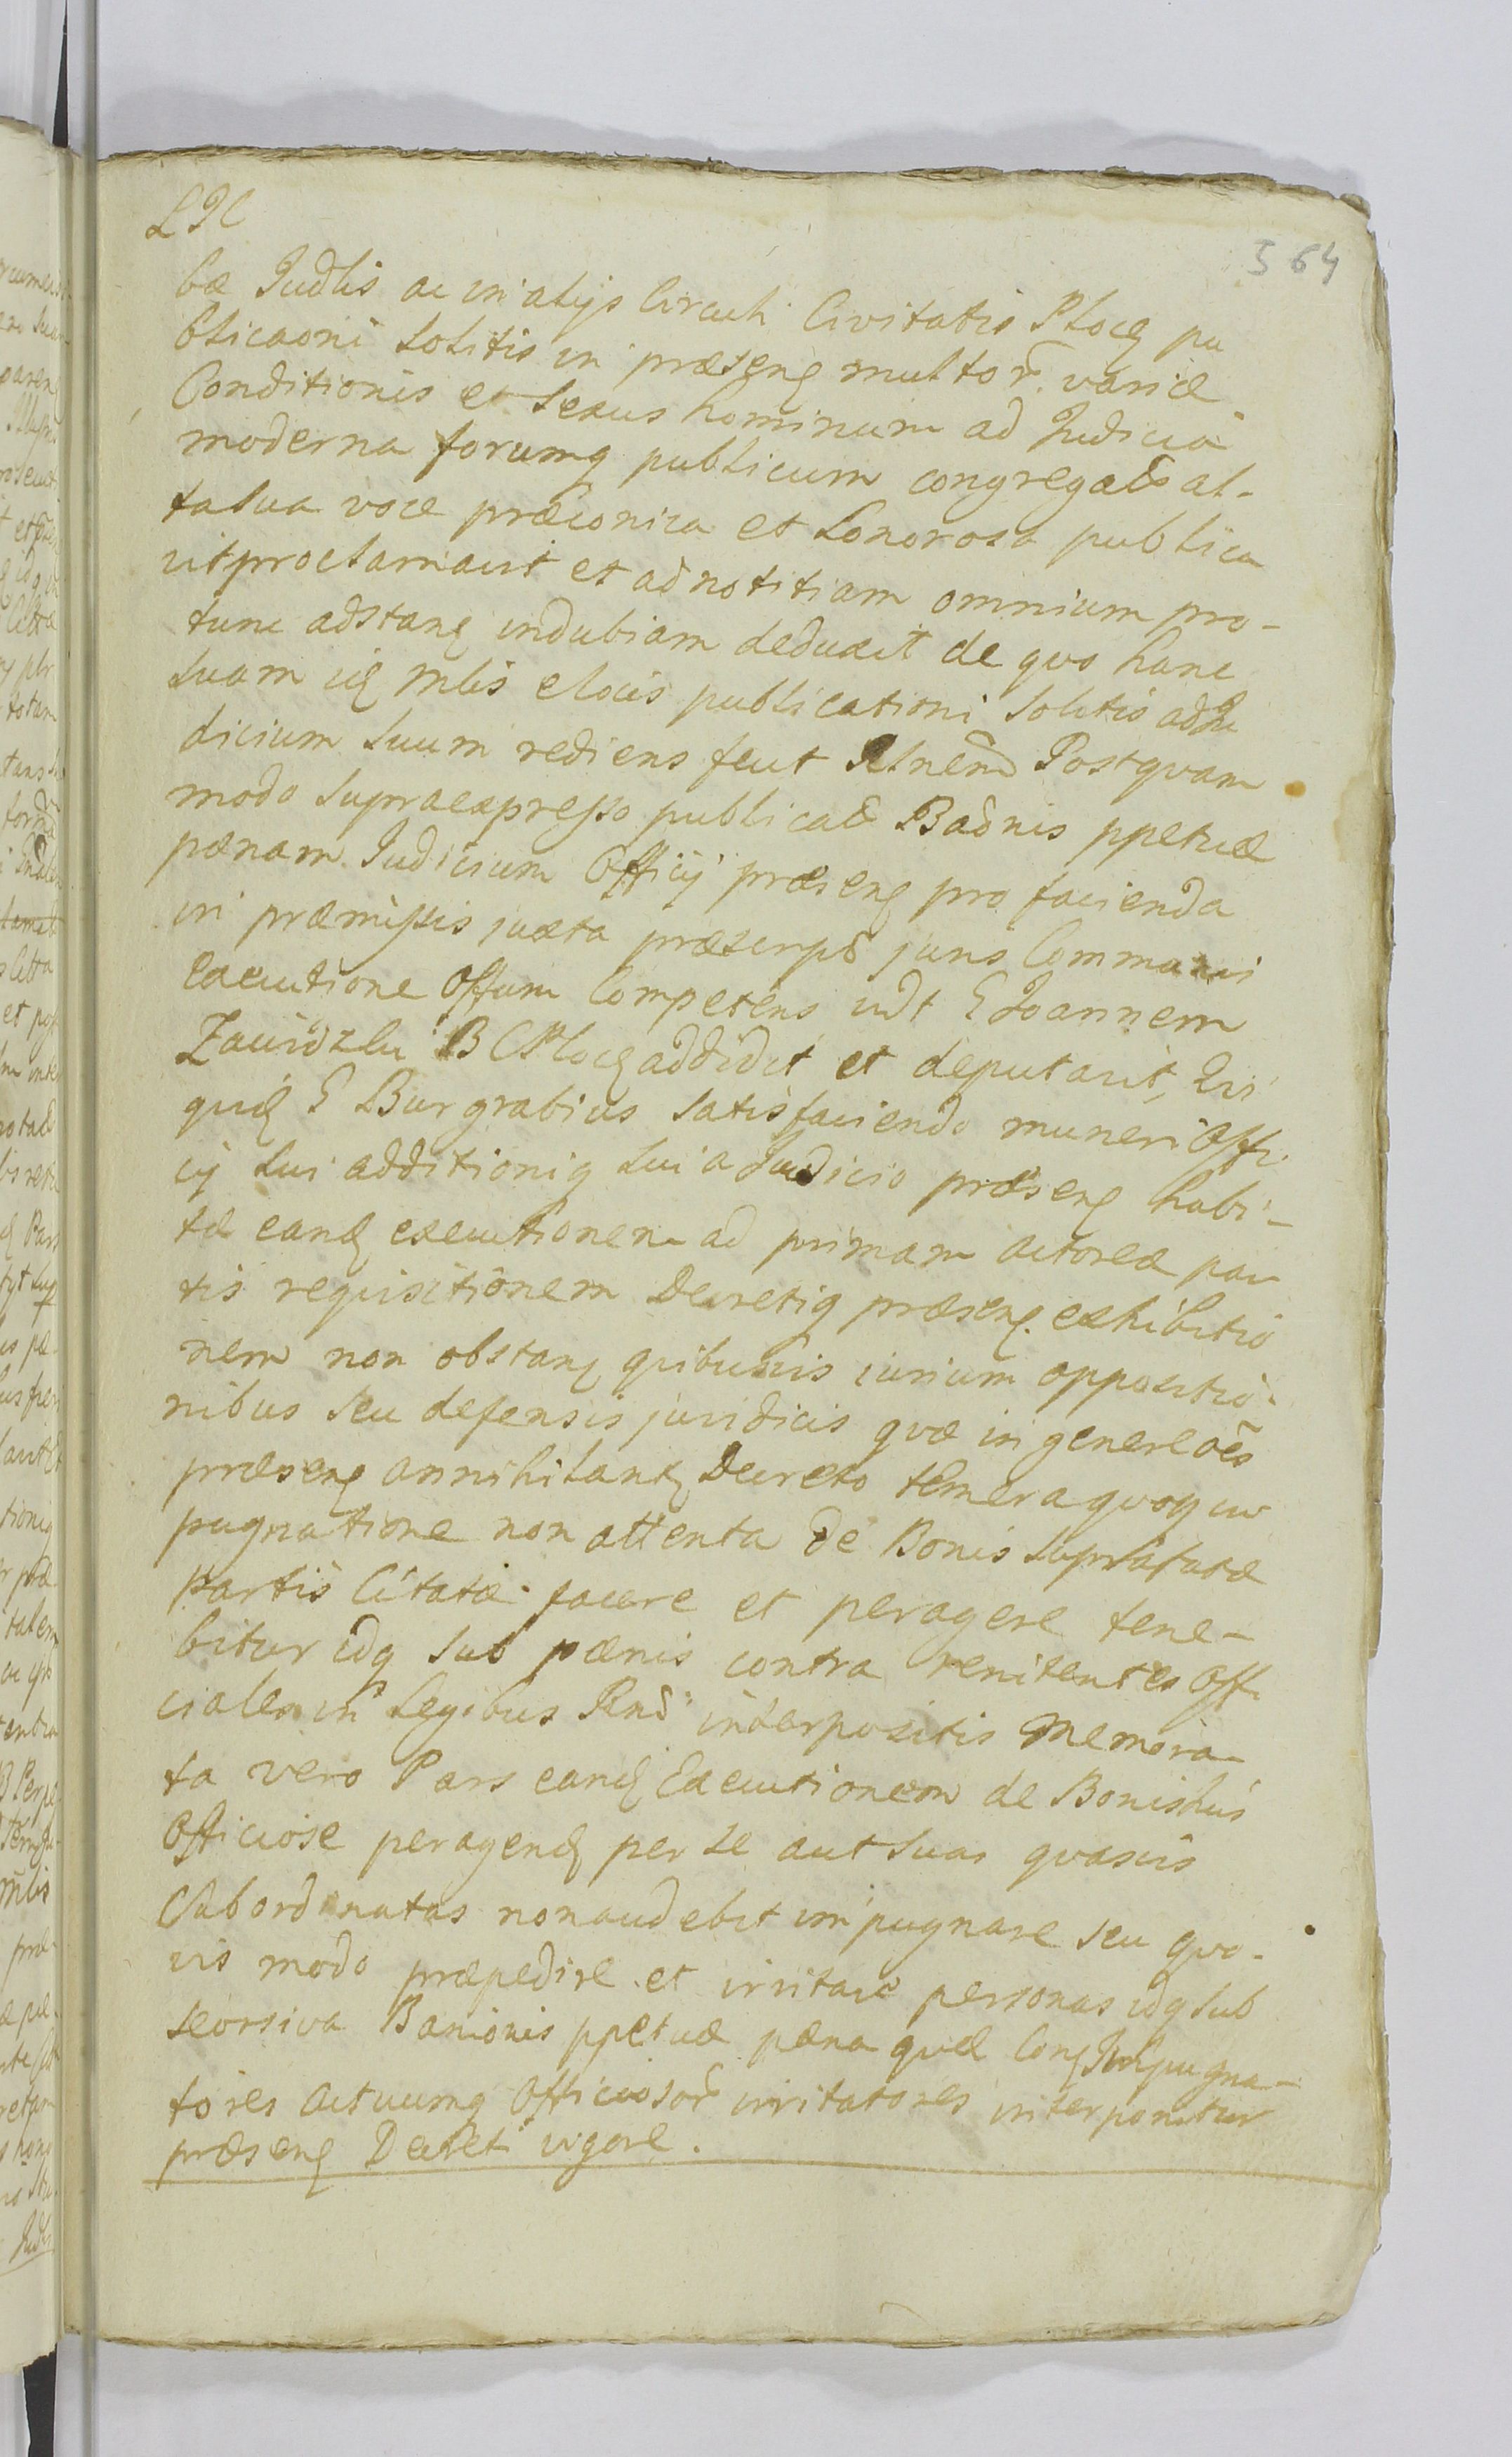 LJC
364
bæ Judlis ac in alijs Circuli Civitatis Ploceȝ pu
blicaoni solitis in præsenȝ multor. variæ
Conditionis et sexus hominum ad Judicia
moderna forumq publicum congregatˢ al-
ta sua voce præconica et sonorosa publica
vit proclamavit et ad notitiam omnium pro-
tunc adstanȝ indubiam deduxit de quo hanc
suam eȝ mlis e locis publicationi solitis ad Ju
dicium suum rediens fecit Relnem Postquam
modo supraexpresso publicatˢ Badnis ppetuæ
pænam Judicium Officij præsenȝ pro facienda
in præmissis juxta præscrpˢ juris Communis
Executione Offum Competens vdt G Joannem
B C Ploceȝ addidit et deputavit, Qui
quiȝ G Burgrabius satisfaciendo muneri Offi
cij sui additioniq sui a Judicio præsenȝ habi-
tæ eandȝ executionem ad primam actoreæ par
tis requisitionem Decretiq præsenȝ exhibitio
nem non obstanȝ quibusvis iurium oppositio-
nibus seu defensis juridicis quæ in genere oẽs
præsenȝ annihilantȝ Decreto temera quoq im
pugnatione non attenta de Bonis
partis Citatæ facere et peragere tene-
bitur idq sub pænis contra renitentes Offi
ciales in Legibus Rnd interpositis Memora
ta vero Pars eandȝ Executionem de Bonis suis
Officiose peragendȝ per se aut suas quasvis
subordinatas non audebit impugnare seu quo-
vis modo præpedire et irritare personas idq sub
seorsiva Banionis ppetuæ pæna quæ Conȝ Impugna-
tores Actuumq Officiosor irritatores interponitur
præsenȝ Decreti vigore.